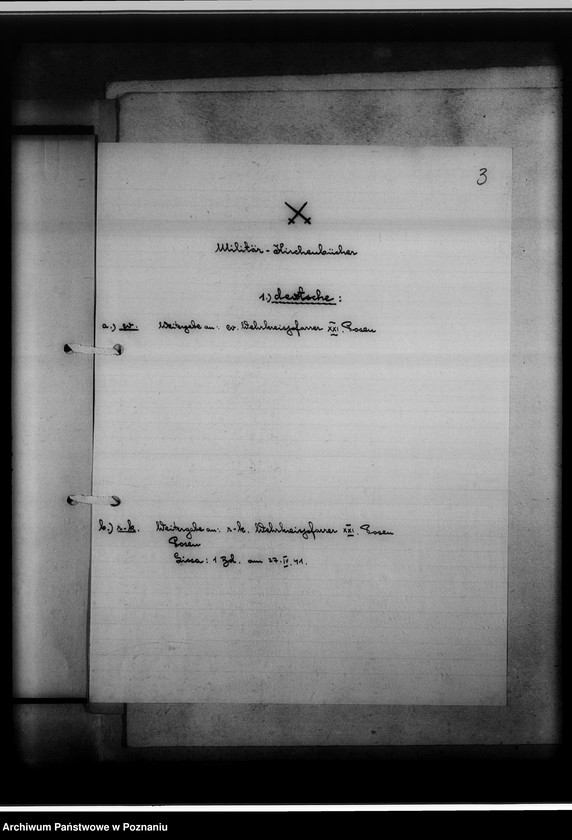 3
Militär-Kirchenbücher
1.) deutsche:
a.) ev. Weitergabe an: ev. Wehrkreispfarrer XXI. Posen
b.) r-k. Weitergabe an: r-k. Wehrkreispfarrer XXI. Posen
Posen
Lissa: 1 Bd. am 27.IV.41.
Archiwum Państwowe w Poznaniu